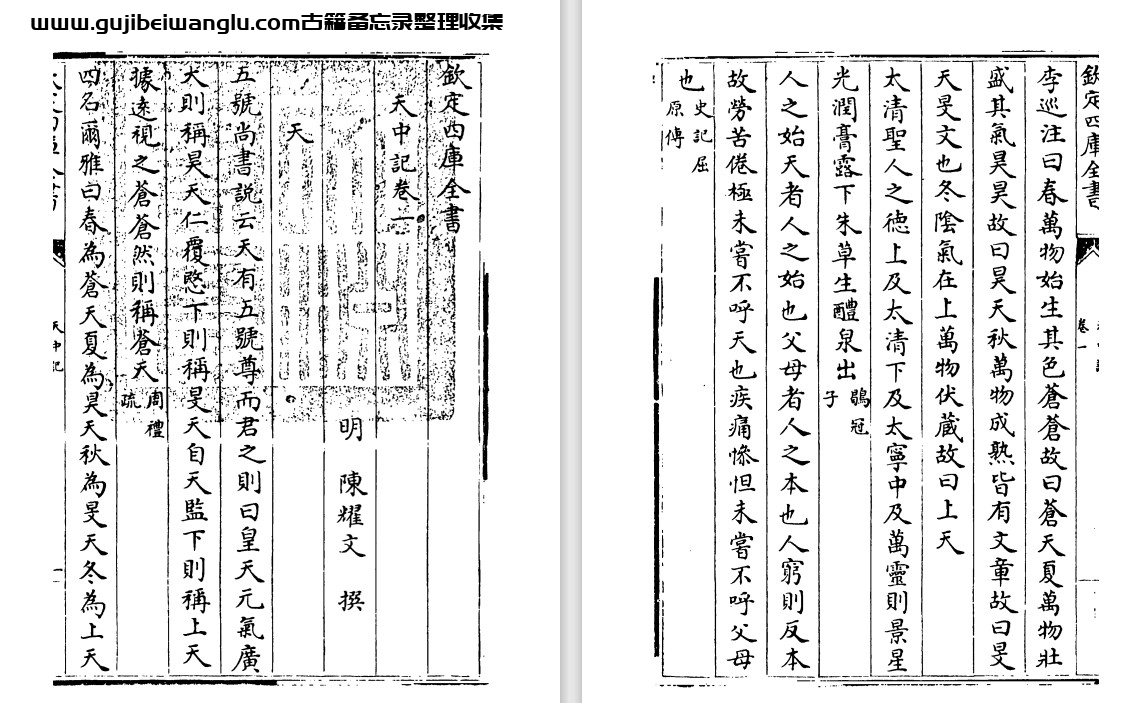 www.gujibeiwanglu.com古籍备忘录整理收集
欽定四庫全書
天中記卷一
明 陳耀文 撰
天
五號尚書説云天有五號尊而君之則曰皇天元氣廣
大則稱昊天仁覆愍下則稱旻天自天監下則稱上天
據逺視之蒼蒼然則稱蒼天周禮疏
四名爾雅曰春為蒼天夏為昊天秋為旻天冬為上天
天中記
欽定四庫全書
卷一
李巡注曰春萬物始生其色蒼蒼故曰蒼天夏萬物壯
盛其氣昊昊故曰昊天秋萬物成熟皆有文章故曰旻
天旻文也冬隂氣在上萬物伏藏故曰上天
太清聖人之德上及太清下及太寧中及萬靈則景星
光潤膏露下朱草生醴泉出鶡冠子
人之始天者人之始也父母者人之本也人窮則反本
故勞苦倦極未嘗不呼天也疾痛慘怛未嘗不呼父母
也史記屈原傳